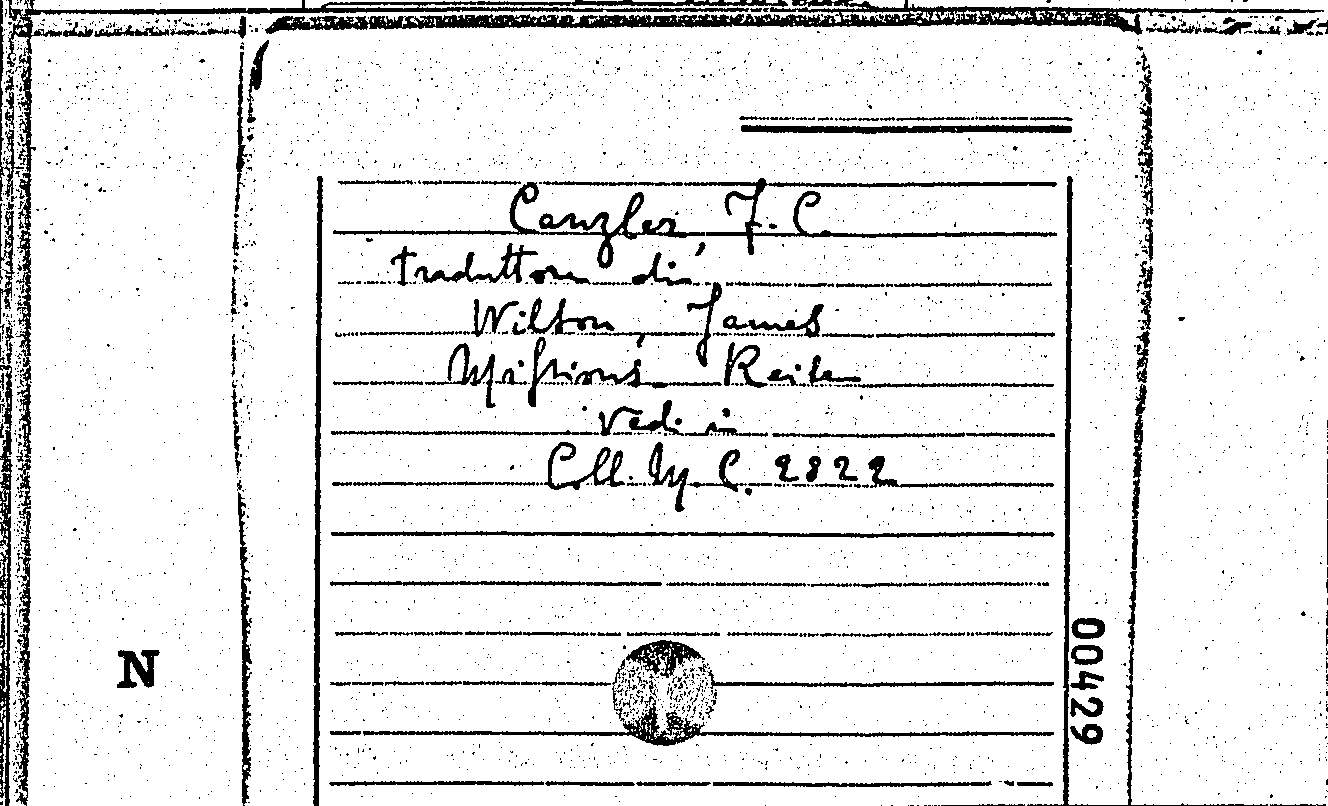 Canzler, F. C.
traduttore di
Wilson, James
Missions- Reise
vedi in
Coll. M. C. 2822
00429
N